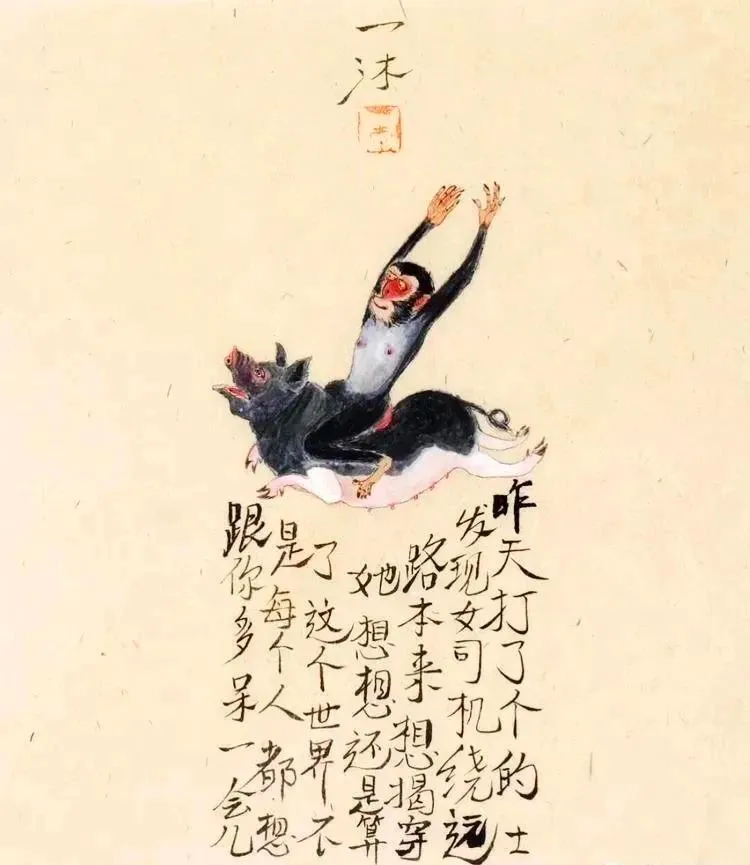 一沐
昨天打了个的士
发现女司机绕远
路本来想揭穿
她想想还是算
了这个世界不
是每个人都想
跟你多呆一会儿